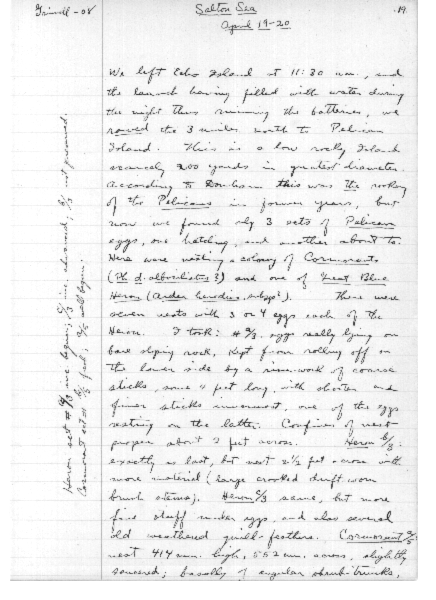 Grinnell - 08
Salton Sea
April 19-20
19
We left Echo Island at 11:30 a.m., and
the launch having filled with water during
the night thus ruining the batteries, we
rowed the 3 miles north to Pelican
Island. This is a low rocky Island
scarcely 200 yards in greatest diameter.
According to this was the rookery
of the Pelicans in former years, but
now we found only 3 sets of Pelican
eggs, one hatching, and another about to.
Here were nesting a colony of Cormorants
(Ph. d. albociliatus?) and one of Great Blue
Heron (Ardea herodias, subsp?). There were
seven nests with 3 or 4 eggs each of the
Heron. I took: # eggs really lying on
bare sloping rock, kept from rolling off on
the lower side by a rim-work of coarse
sticks, some 2 feet long, with shorter and
finer sticks innermost, one of the eggs
resting on the latter. Confines of nest
proper about 2 feet across. Heron
exactly as last, but nest 2½ feet across with
more material (large crooked drift worn
brush stems). Heron same, but more
fine stuff under eggs, and also several
old weathered quill-feathers. Cormorant
nest 414 mm. high, 552 mm. across, slightly
saucered; basally of angular shrub-trunks,
Heron set # inc. begun; inc. advanced; not preserved.
Cormorant set # fresh; well begun.